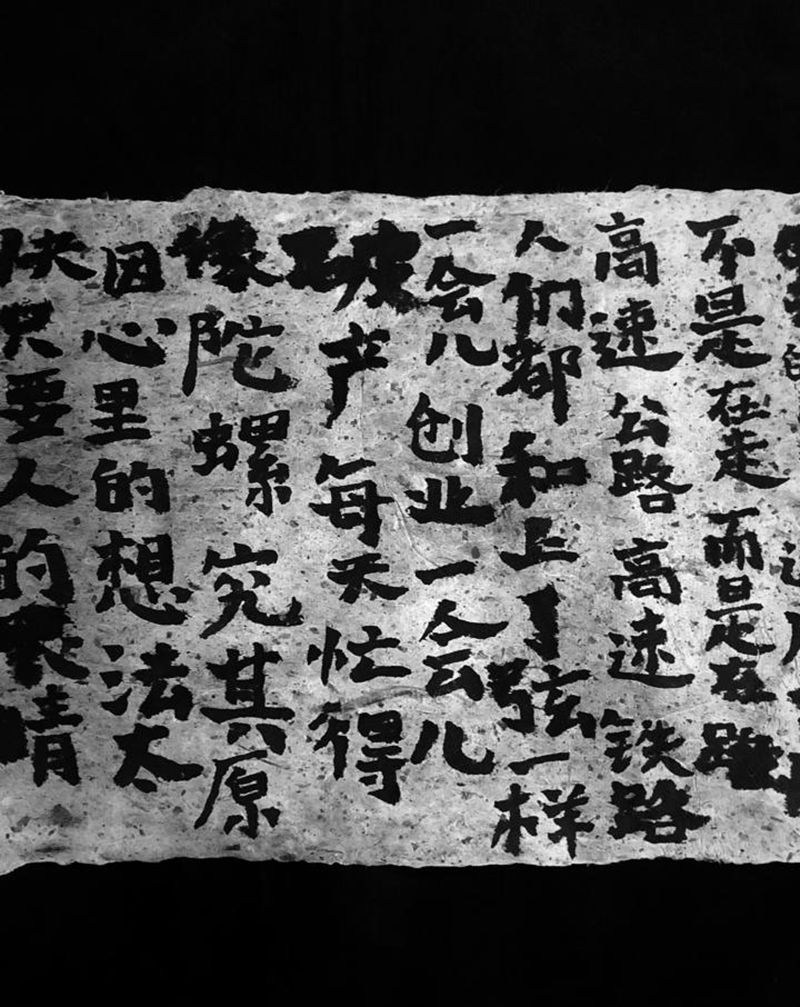 不是在走而是在跑
高速公路高速铁路
人们都和上了弦一样
一会儿创业一会儿
破产每天忙得
像陀螺究其原
因心里的想法太
快只要人的眼睛